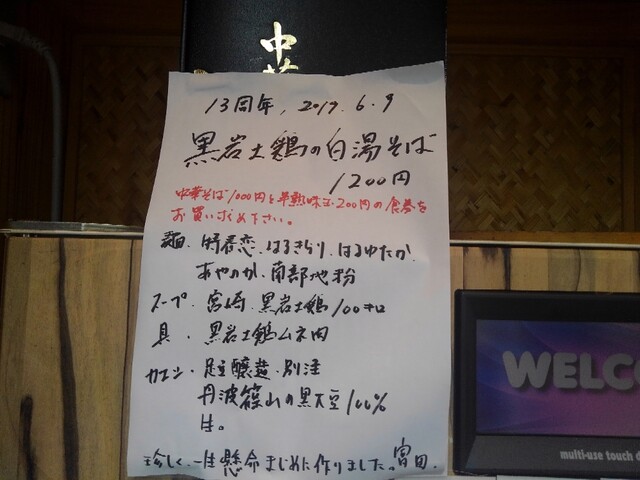 中華
13周年, 2019.6.9
黒岩土鶏の白湯そば
1200円
中華そば1000円と半熟味玉200円の食券を
お買い求め下さい。
麺.春よ恋.はるきらり.はるゆたか
あやひか.南部地粉
スープ.宮崎.黒岩土鶏100キロ
具.黒岩土鶏ムネ肉
カエシ.足立醸造.別注
丹波篠山の黒大豆100%
生。
珍しく.一生懸命まじめに作りました。宮田.
WELCO
multi-use touch d